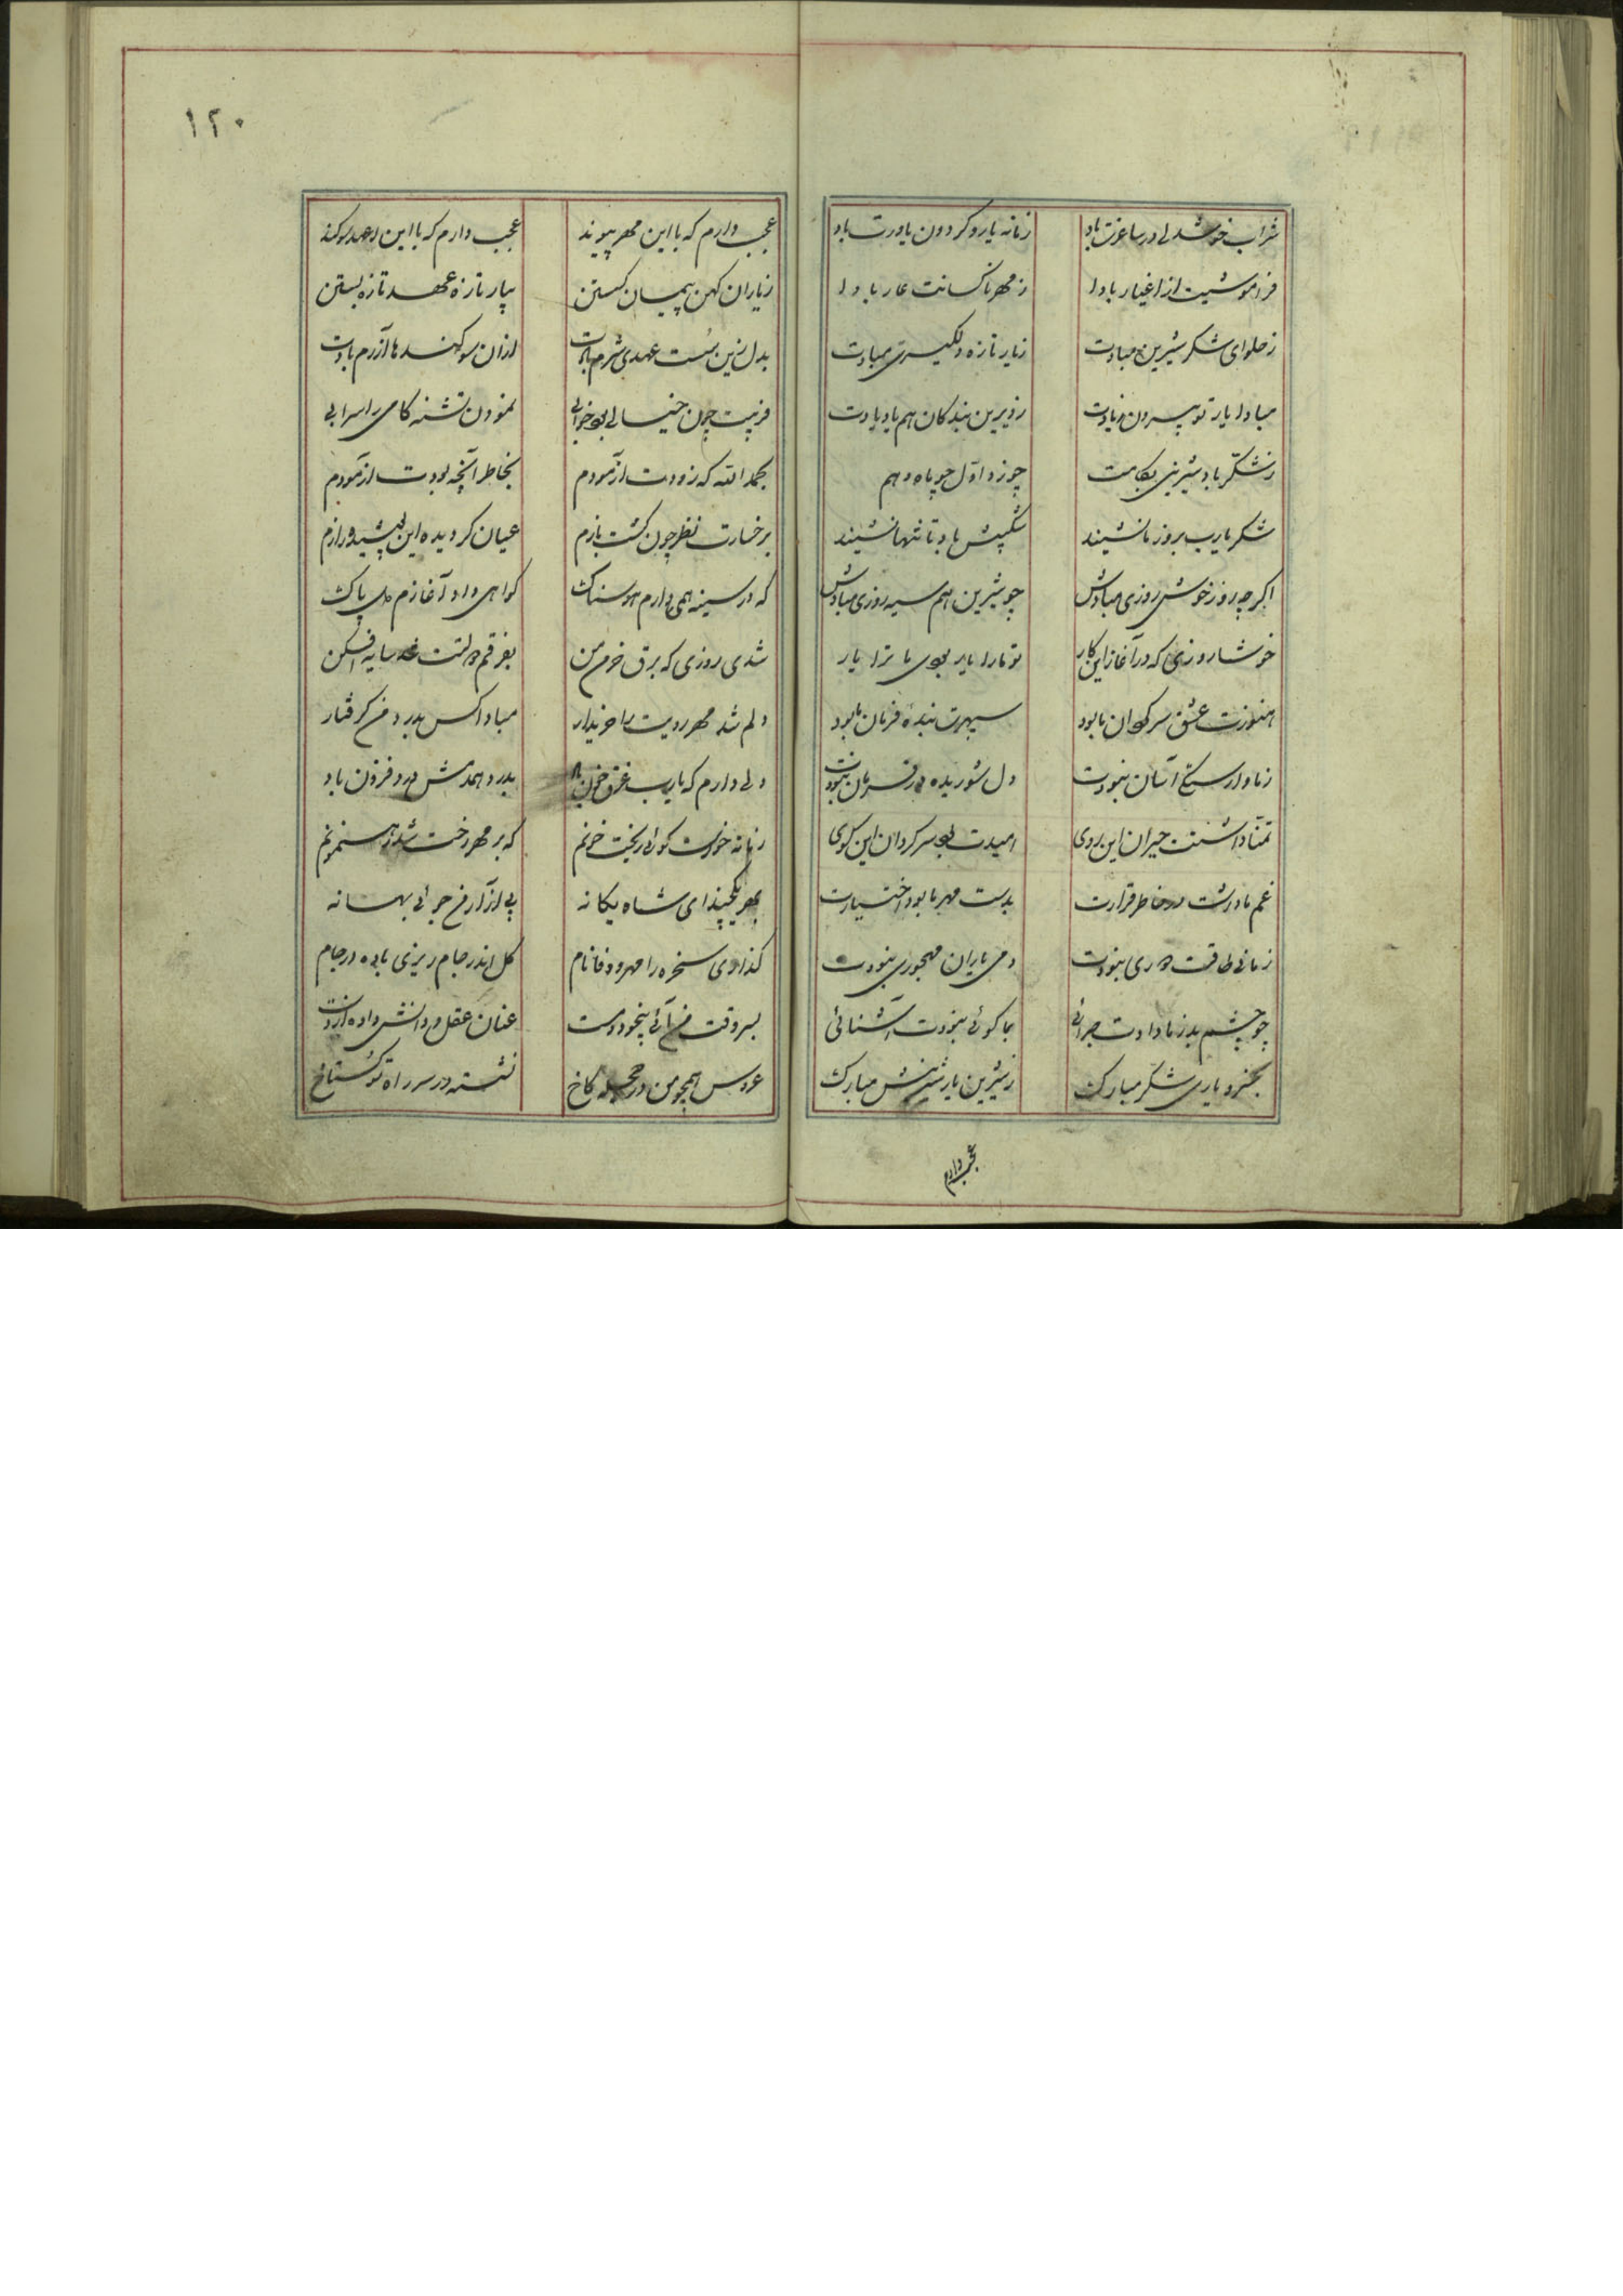 شراب خوشدلی در ساغرت باد زمانه یار و کردون یاورت باد
فراموشیت از اغیار بادا ز مهر ناکسانت عار بادا
ز حلوای شکر شیرین مبادت ز یار تازه دلگیری مبادت
مبادا یار تو بیرون ز یادت ز دیرین بندکان هم یاد بادت
ز شکر باد شیرینی بکامت
شکر یارب بروز ما نشیند شکیبش باد تا تنها نشیند
اکر چه روز خوش روزی مبادش چو شیرین هم سیه روزی مبادش
خوشا روزی که در آغاز این کار تو ما را یار بودی ما ترا یار
هنوزت عشق سرکردان ما بود سپهرت بنده فرمان ما بود
ز ما وارستکی آسان نبودت دل شوریده در فرمان نبودت
تمنا داشتت حیران این روی امیدت بود سرکردان این کوی
غم ما داشت در خاطر قرارت بدست مهر ما بود اختیارت
زمانی طاقت دوری نبودت دمی یاران مهجوری نبودت
چو چشم بد ز ما دادت جدائی بما کوئی نبودت آشنائی
بخسرو یاری شکر مبارک ز شیرین یار شیرینش مبارک
عجب دارم
۱۲۰
عجب دارم که با این مهر پیوند عجب دارم که با این عهد و سوکند
ز یاران کهن پیمان کسستن بیار تازه عهد تازه بستن
بدل زین سست عهدی شرم بادت ازان سوکندها آزرم بادت
فریبت چون خیالی بود و خوابی نمودن تشنه کامی را سرابی
بحمد الله که زودت آزمودم بخاطر آنچه بودت آزمودم
بر خسارت نظر چون کشت بازم عیان کردیده این پوشیده رازم
که در سینه همی دارم هوسناک کواهی داد آغازم دل پاک
شدی روزی که برق خرمن من بفرقم دولتت شد سایه افکن
دلم شد مهر رویت را خریدار مبادا کس بدرد من کرفتار
دلی دارم که یارب غرق خون باد بدرد و همدمش درد فزون باد
زمانه خواست کوئی ریخت خونم که بر مهر رخت شد رهنمونم
بهر یکچند ای شاه یکانه پی آزار من جوئی بهانه
کذاری سخره را مهر و وفا نام کل اندر جام ریزی باده در جام
بسر وقت من آئی بیخود و مست عنان عقل و دانش داده از دست
عروس همچو من در حجله کاخ نشسته در سر راه تو کستاخ